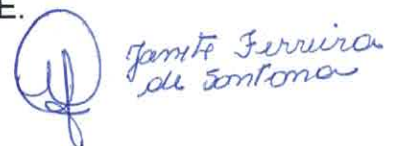 E.
Janete Ferreira
de Santana